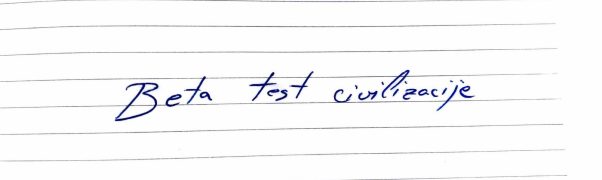 Beta test civilizacije